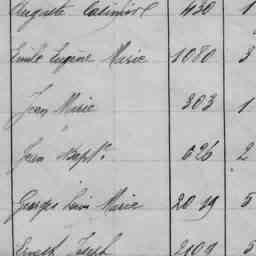 Auguste Casimire 430 1
Emile Eugène Marie 1080 3
Jean Marie 303 1
Jean Bapte. 626 2
Georges Louis Marie 2019 5
Ernest Joseph 2109 5